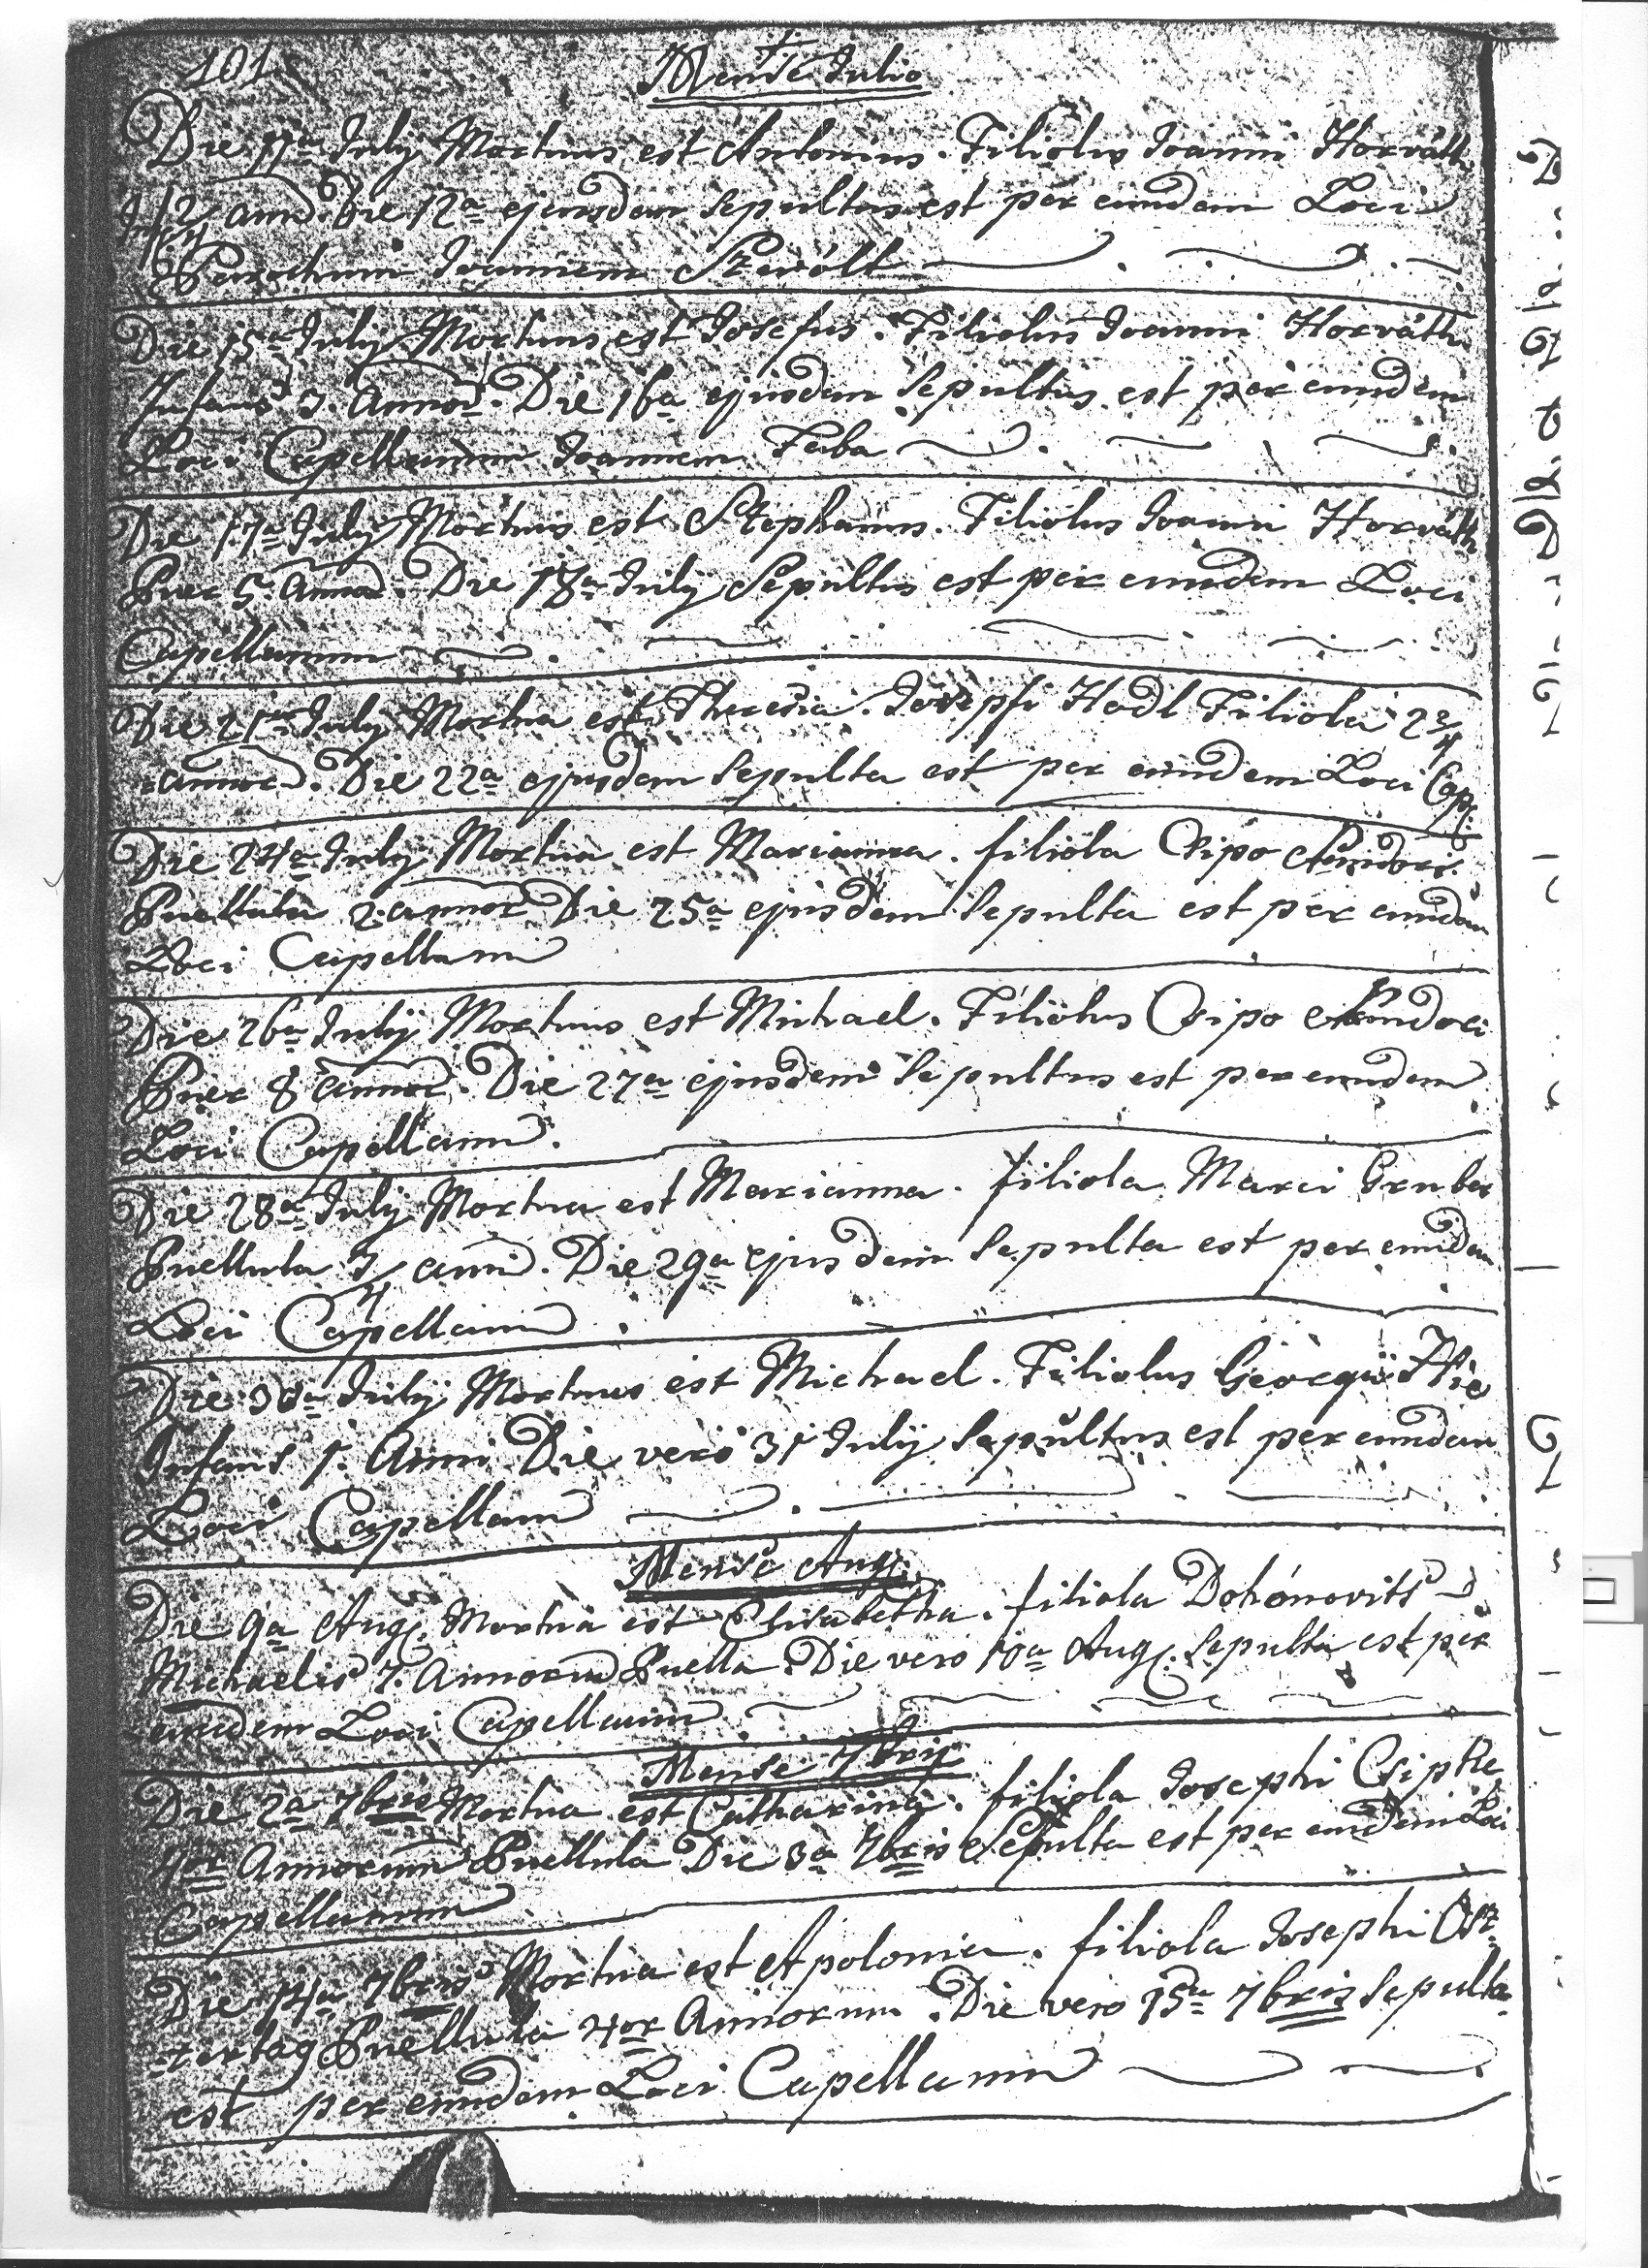 101
Mense Julio
Die 11a July Mortuus est Antonius. Filiolus Joanni Horváth
anni Die 12a ejusdem Sepultus est per eundem Loci
Parochum Joannem
Die 15a July Mortuus est Josefus. Filiolus Joanni Horváth
Infans 3. Annor. Die 16a ejusdem Sepultus est per eundem
Loci Capellanum Joannem Faba
Die 17a July Mortuus est Stephanus. Filiolus Joanni Horváth
Puer 5. Annor. Die 18a July Sepultus est per eundem Loci
Capellanum
Die 21a July Mortua est Theresia. Josepfi Hadl Filiola 2 3/4
annor. Die 22a ejusdem Sepulta est per eundem Loci Cap:
Die 24a July Mortua est Marianna. filiola Csipo
Puellula 2. annor Die 25a ejusdem Sepulta est per eundem
Loci Capellanum
Die 26a July Mortuus est Michael. Filiolus Csipo
Puer 8 annor. Die 27a ejusdem Sepultus est per eundem
Loci Capellanum.
Die 28a July Mortua est Marianna. filiola Marci Gruber
Puellula 3/4 anni. Die 29a ejusdem Sepulta est per eundem
Loci Capellanum.
Die 30a July Mortuus est Michael. Filiolus Georgii
Infans 1. Anni Die vero 31 July Sepultus est per eundem
Loci Capellanum
Mense Aug.
Die 9a Aug. Mortua est Elisabetha. filiola Dohónovits
Michaelis 7. Annorum Puella. Die vero 10a Aug. Sepulta est per
eundem Loci Capellanum
Mense 7bris
Die 2a 7bris Mortua est Catharina. filiola Josephi Csipke
4or Annorum Puellula Die 3a 7bris Sepulta est per eundem Loci
Capellanum
Die 14a 7bris Mortua est Apolonia. filiola Josephi Osz-
tertag Puellula 4or Annorum. Die vero 15a 7bris Sepulta
est per eundem Loci Capellanum